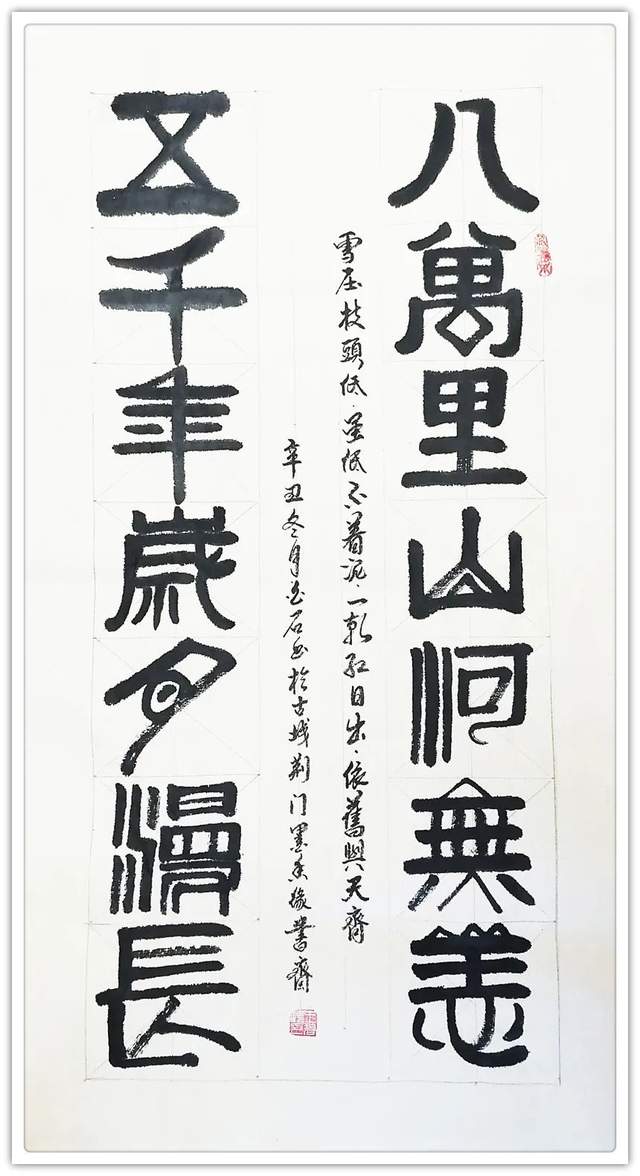 八萬里山河無恙
雪压枝頭低·虽低不着泥·一朝红日出·依舊與天齊
辛丑冬月石书於古城荆门墨香缘書齋
五千年歲月漫長